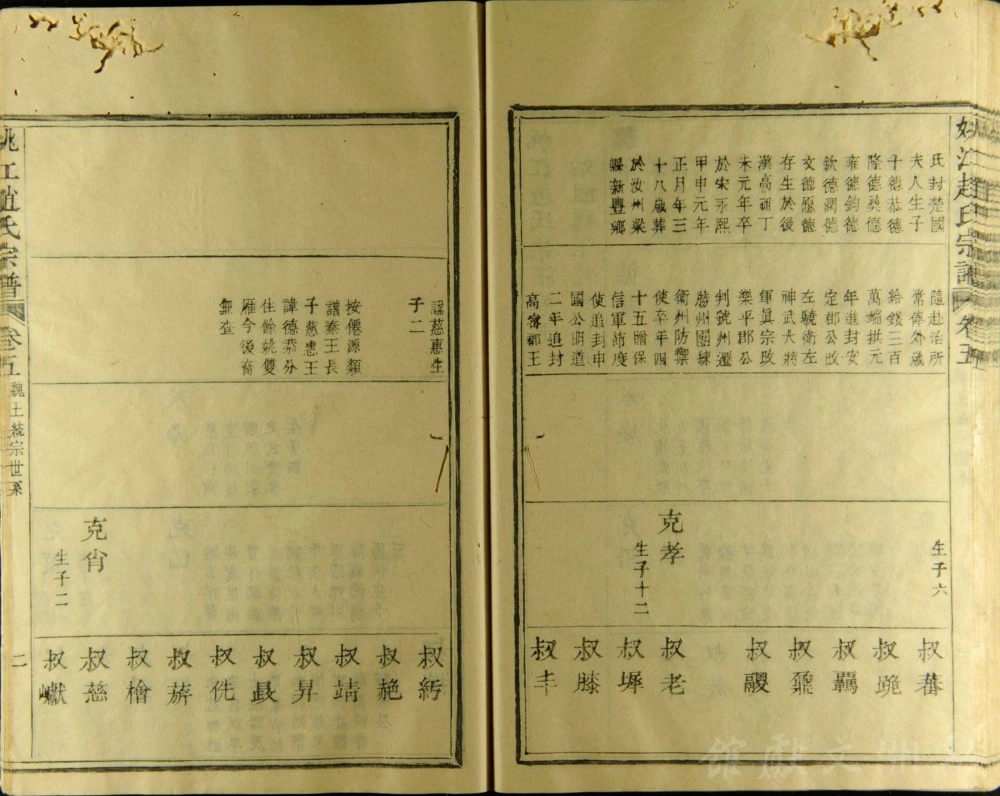 姚江趙氏宗譜
卷五
氏封楚國
夫人生子
十德恭德
隆德彝德
雍德鈞德
欽德潤德
文德愿德
存生於後
漢高祖丁
未元年卒
於宋雍熙
甲申元年
正月年三
十八歲葬
於汝州梁
縣新豐鄉
隨赴治所
常俸外歲
給錢三百
萬端拱元
年進封安
定郡公改
左驍衛左
神武大將
軍真宗改
樂平郡公
判虢州遷
勝州團練
衛州防禦
使卒年四
十五贈保
信軍節度
使追封申
國公明道
二年追封
高密郡王
生子六
克孝
生子十二
叔蕃
叔跪
叔羈
叔䵻
叔鬷
叔老
叔墀
叔滕
叔丰
謠慈惠生
子二
按僊源類
譜秦王長
子慈惠王
諱德恭分
住餘姚雙
雁今後裔
無查
克肖
生子二
叔紓
叔赩
叔靖
叔昇
叔㝡
叔侁
叔薿
叔檜
叔慈
叔巘
姚江趙氏宗譜
卷五
魏王統宗世系
二
文獻館